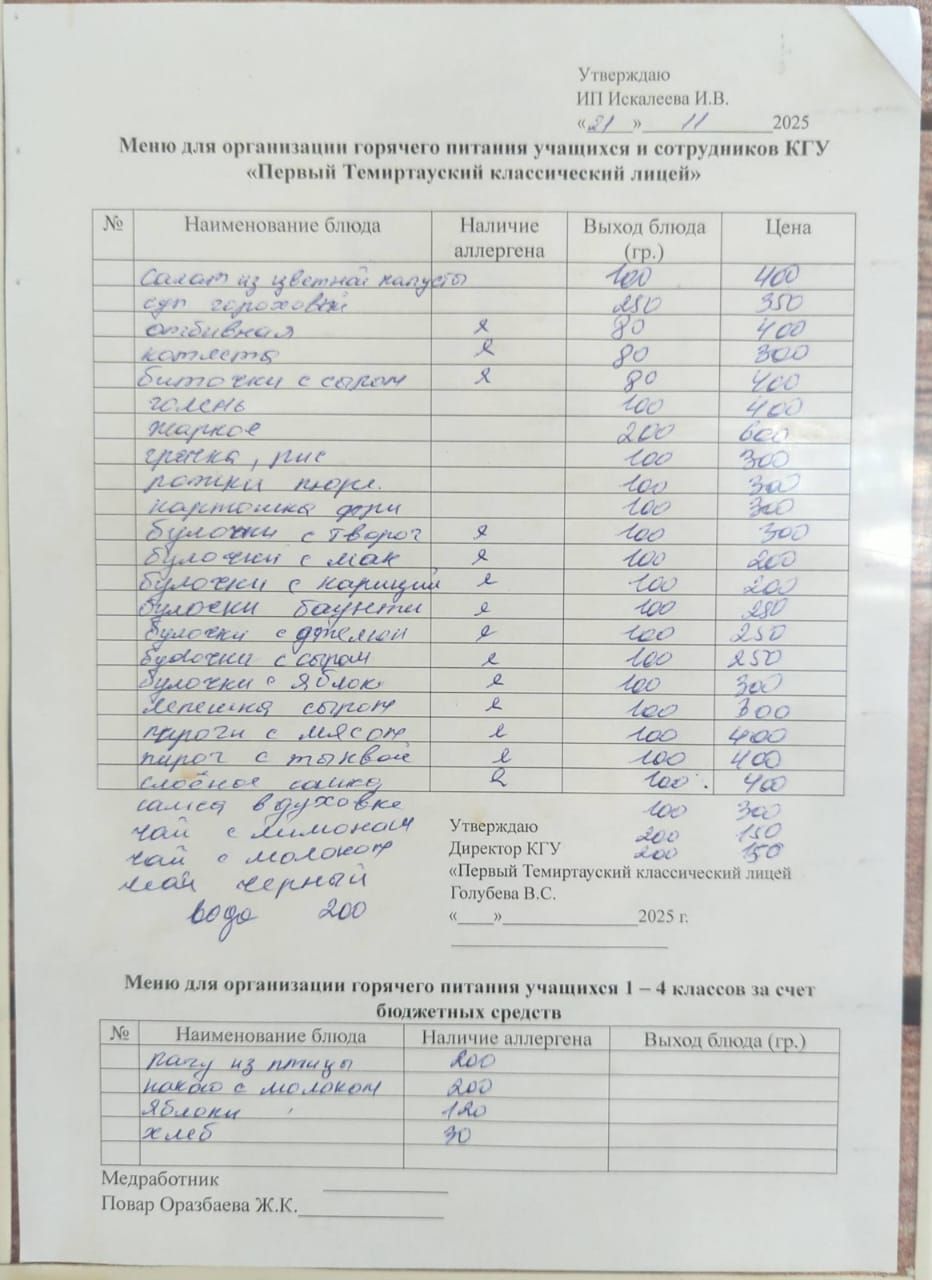 Утверждаю
ИП Искалеева И.В.
«21» 11 2025
Меню для организации горячего питания учащихся и сотрудников КГУ
«Первый Темиртауский классический лицей»
№ Наименование блюда Наличие аллергена Выход блюда (гр.) Цена
Салат из цветной капусты 100 400
суп гороховый 250 350
отбивная я 80 400
котлета я 80 300
биточки с сыром я 80 400
голень 100 400
жаркое 200 600
гречка, рис 100 300
рожки пюре. 100 300
картошка фри 100 300
булочки с творог я 100 300
булочки с мак я 100 200
булочки с кариций я 100 200
булочки баунти я 100 250
булочки с джемом я 100 250
булочки с сыром я 100 250
булочки с яблок я 100 300
лепешка сыром я 100 300
пироги с мясом я 100 400
пирог с тыквой я 100 400
слоёное 100 400
самса в духовке 100 300
чай с лимоном 200 150
чай с молоком 200 150
чай черный
вода 200
Утверждаю
Директор КГУ
«Первый Темиртауский классический лицей
Голубева В.С.
«____»______________2025 г.
Меню для организации горячего питания учащихся 1 – 4 классов за счет
бюджетных средств
№ Наименование блюда Наличие аллергена Выход блюда (гр.)
Рагу из птицы 200
какао с молоком 200
Яблоки 120
хлеб 30
Медработник
Повар Оразбаева Ж.К.